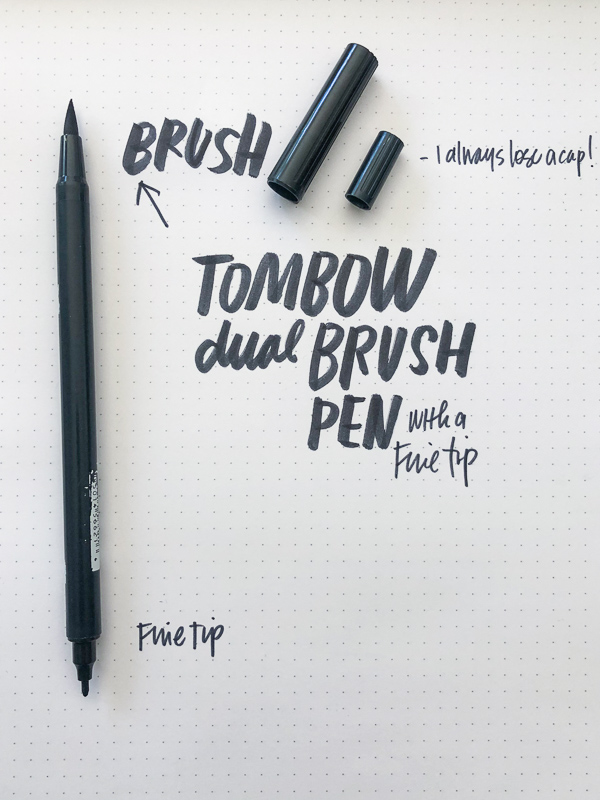 BRUSH
- I always lose a cap!
TOMBOW
dual BRUSH
PEN with a
Fine tip
Fine tip